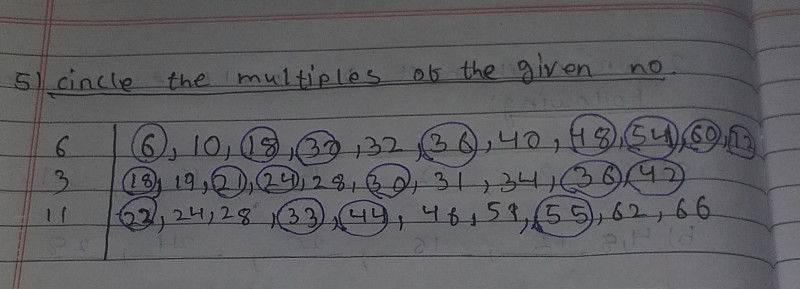 5) circle the multiples of the given no.
6 | 6, 10, 18, 30, 32, 36, 40, 48, 54, 60, 72
3 | 18, 19, 21, 24, 28, 30, 31, 34, 36, 42
11 | 22, 24, 28, 33, 44, 46, 51, 55, 62, 66